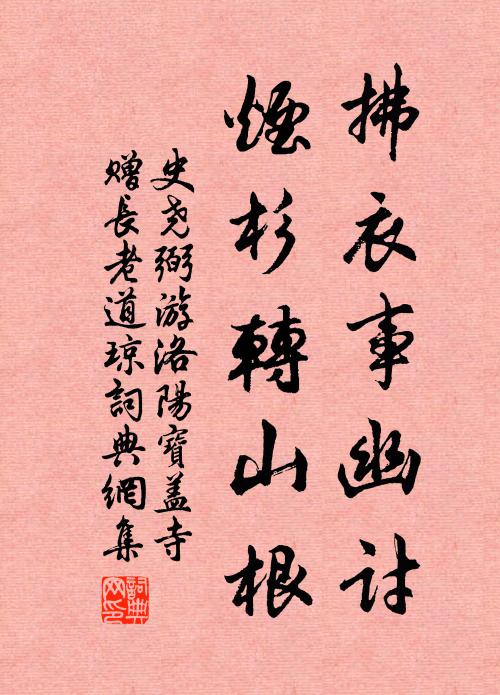 拂衣事幽討
煙杉轉山根
史尧弼游洛陽寶盖寺
贈長老道琼詞典網集
詞典
网印